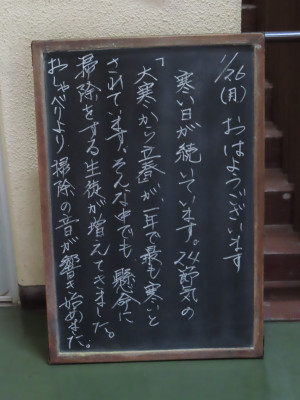 1/26(月) おはようございます
寒い日が続いています。24節気の
「大寒から立春が、一年で最も寒いと
されています。そんな中でも懸命に
掃除をする生徒が増えてきました。
おしゃべりより掃除の音が響き始めました。